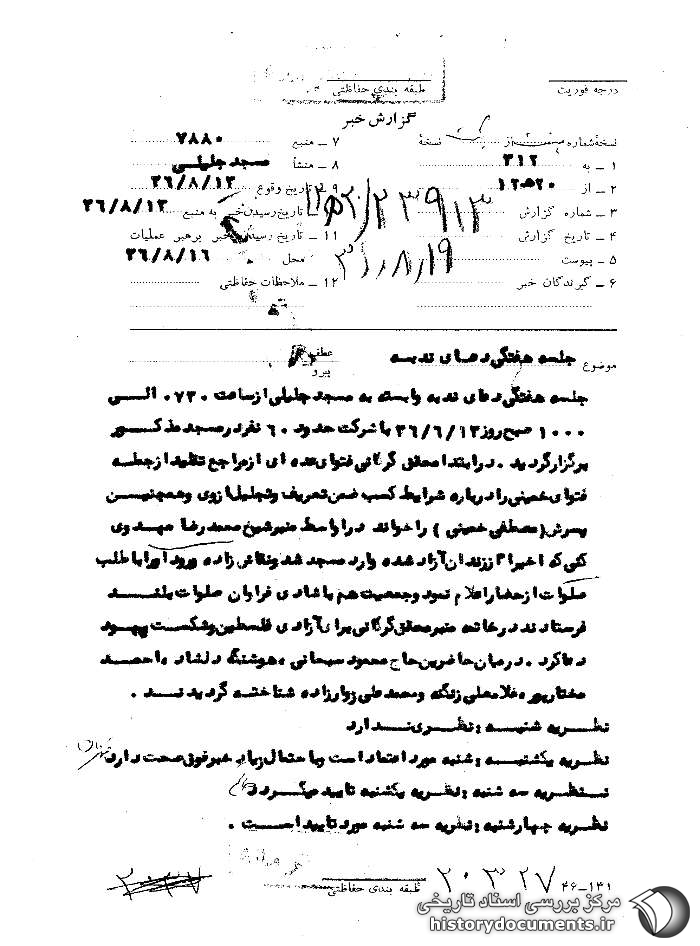 طبقه بندی حفاظتی
درجه فوریت
گزارش خبر
نسخهٔ شماره از نسخهٔ
۱ ـ به ۳۱۲
۲ ـ از ۱۲ه۲۰
۳ ـ شماره گزارش
۴ ـ تاریخ گزارش
۵ ـ پیوست
۶ ـ گیرندگان خبر
۷ ـ منبع ۷۸۸۰
۸ ـ منشأ مسجد جلیلی
۹ ـ تاریخ وقوع ۳۶/۸/۱۳
تاریخ رسیدن خبر به منبع ۳۶/۸/۱۳
۱۱ ـ تاریخ رسیدن خبر برهبر عملیات
محل ۳۶/۸/۱۶
۱۲ ـ ملاحظات حفاظتی
موضوع جلسه هفتگی دعای ندبه
عطف
پیرو
جلسه هفتگی دعای ندبه وابسته به مسجد جلیلی از ساعت ۰۷۳۰ الــی
۱۰۰۰ صبح روز ۳۶/۶/۱۳ با شرکت حدود ۶۰ نفر در مسجد مذکــور
برگزار گردید . در ابتدا محقق گرکانی فتوای عده ای از مراجع تقلید از جمله
فتوای خمینی را درباره شرایط کسب ضمن تعریف و تجلیل از وی و همچنیــن
پسرش ( مصطفی خمینی ) را خواند در اواسط منبر شیخ محمد رضا مهــدوی
کنی که اخیرا" از زندان آزاد شده وارد مسجد شد و نقاش زاده ورود او را با طلب
صلوات از حضار اعلام نمود و جمعیت هم با شادی فراوان صلوات بلنــد
فرستادند در خاتمه منبر محقق گرکانی برای آزادی فلسطین و شکست یهــود
دعا کرد . در میان حاضرین حاج محمود سبحانی ، هوشنگ دلشاد ، احمــد
مختارپور ، غلامعلی زنگنه و محمد علی زوارزاده شناخته گردیدنــد .
نظریه شنبــه : نظری نــدارد
نظریه یکشنبــه : شنبه مورد اعتماد است و با احتمال زیاد خبر فوق صحت دارد
نــظریه سه شنبه : نظریه یکشنبه تایید میگــردد
نظریه چهارشنبه : نظریه سه شنبه مورد تایید اســت .
طبقه بندی حفاظتی
۲۰۳۲۷
۴۶-۱۳۱
مرکز بررسی اسناد تاریخی
historydocuments.ir